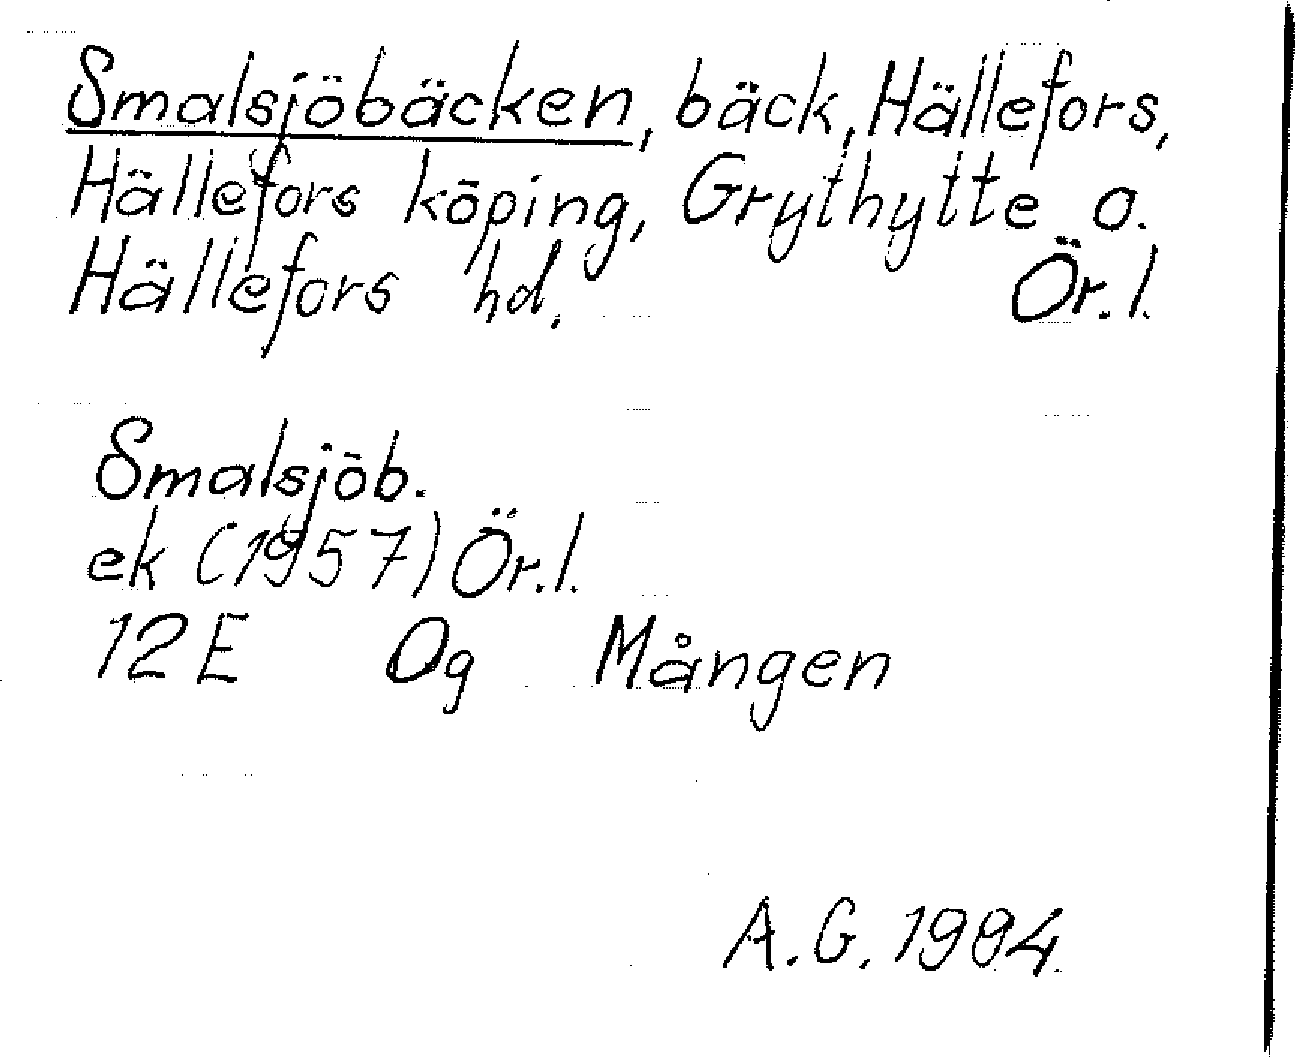 Smalsjöbäcken, bäck, Hällefors,
Hällefors köping, Grythytte o.
Hällefors hd. Ör.l.
Smalsjöb.
ek (1957) Ör.l.
12E Og Mången
A.G. 1984